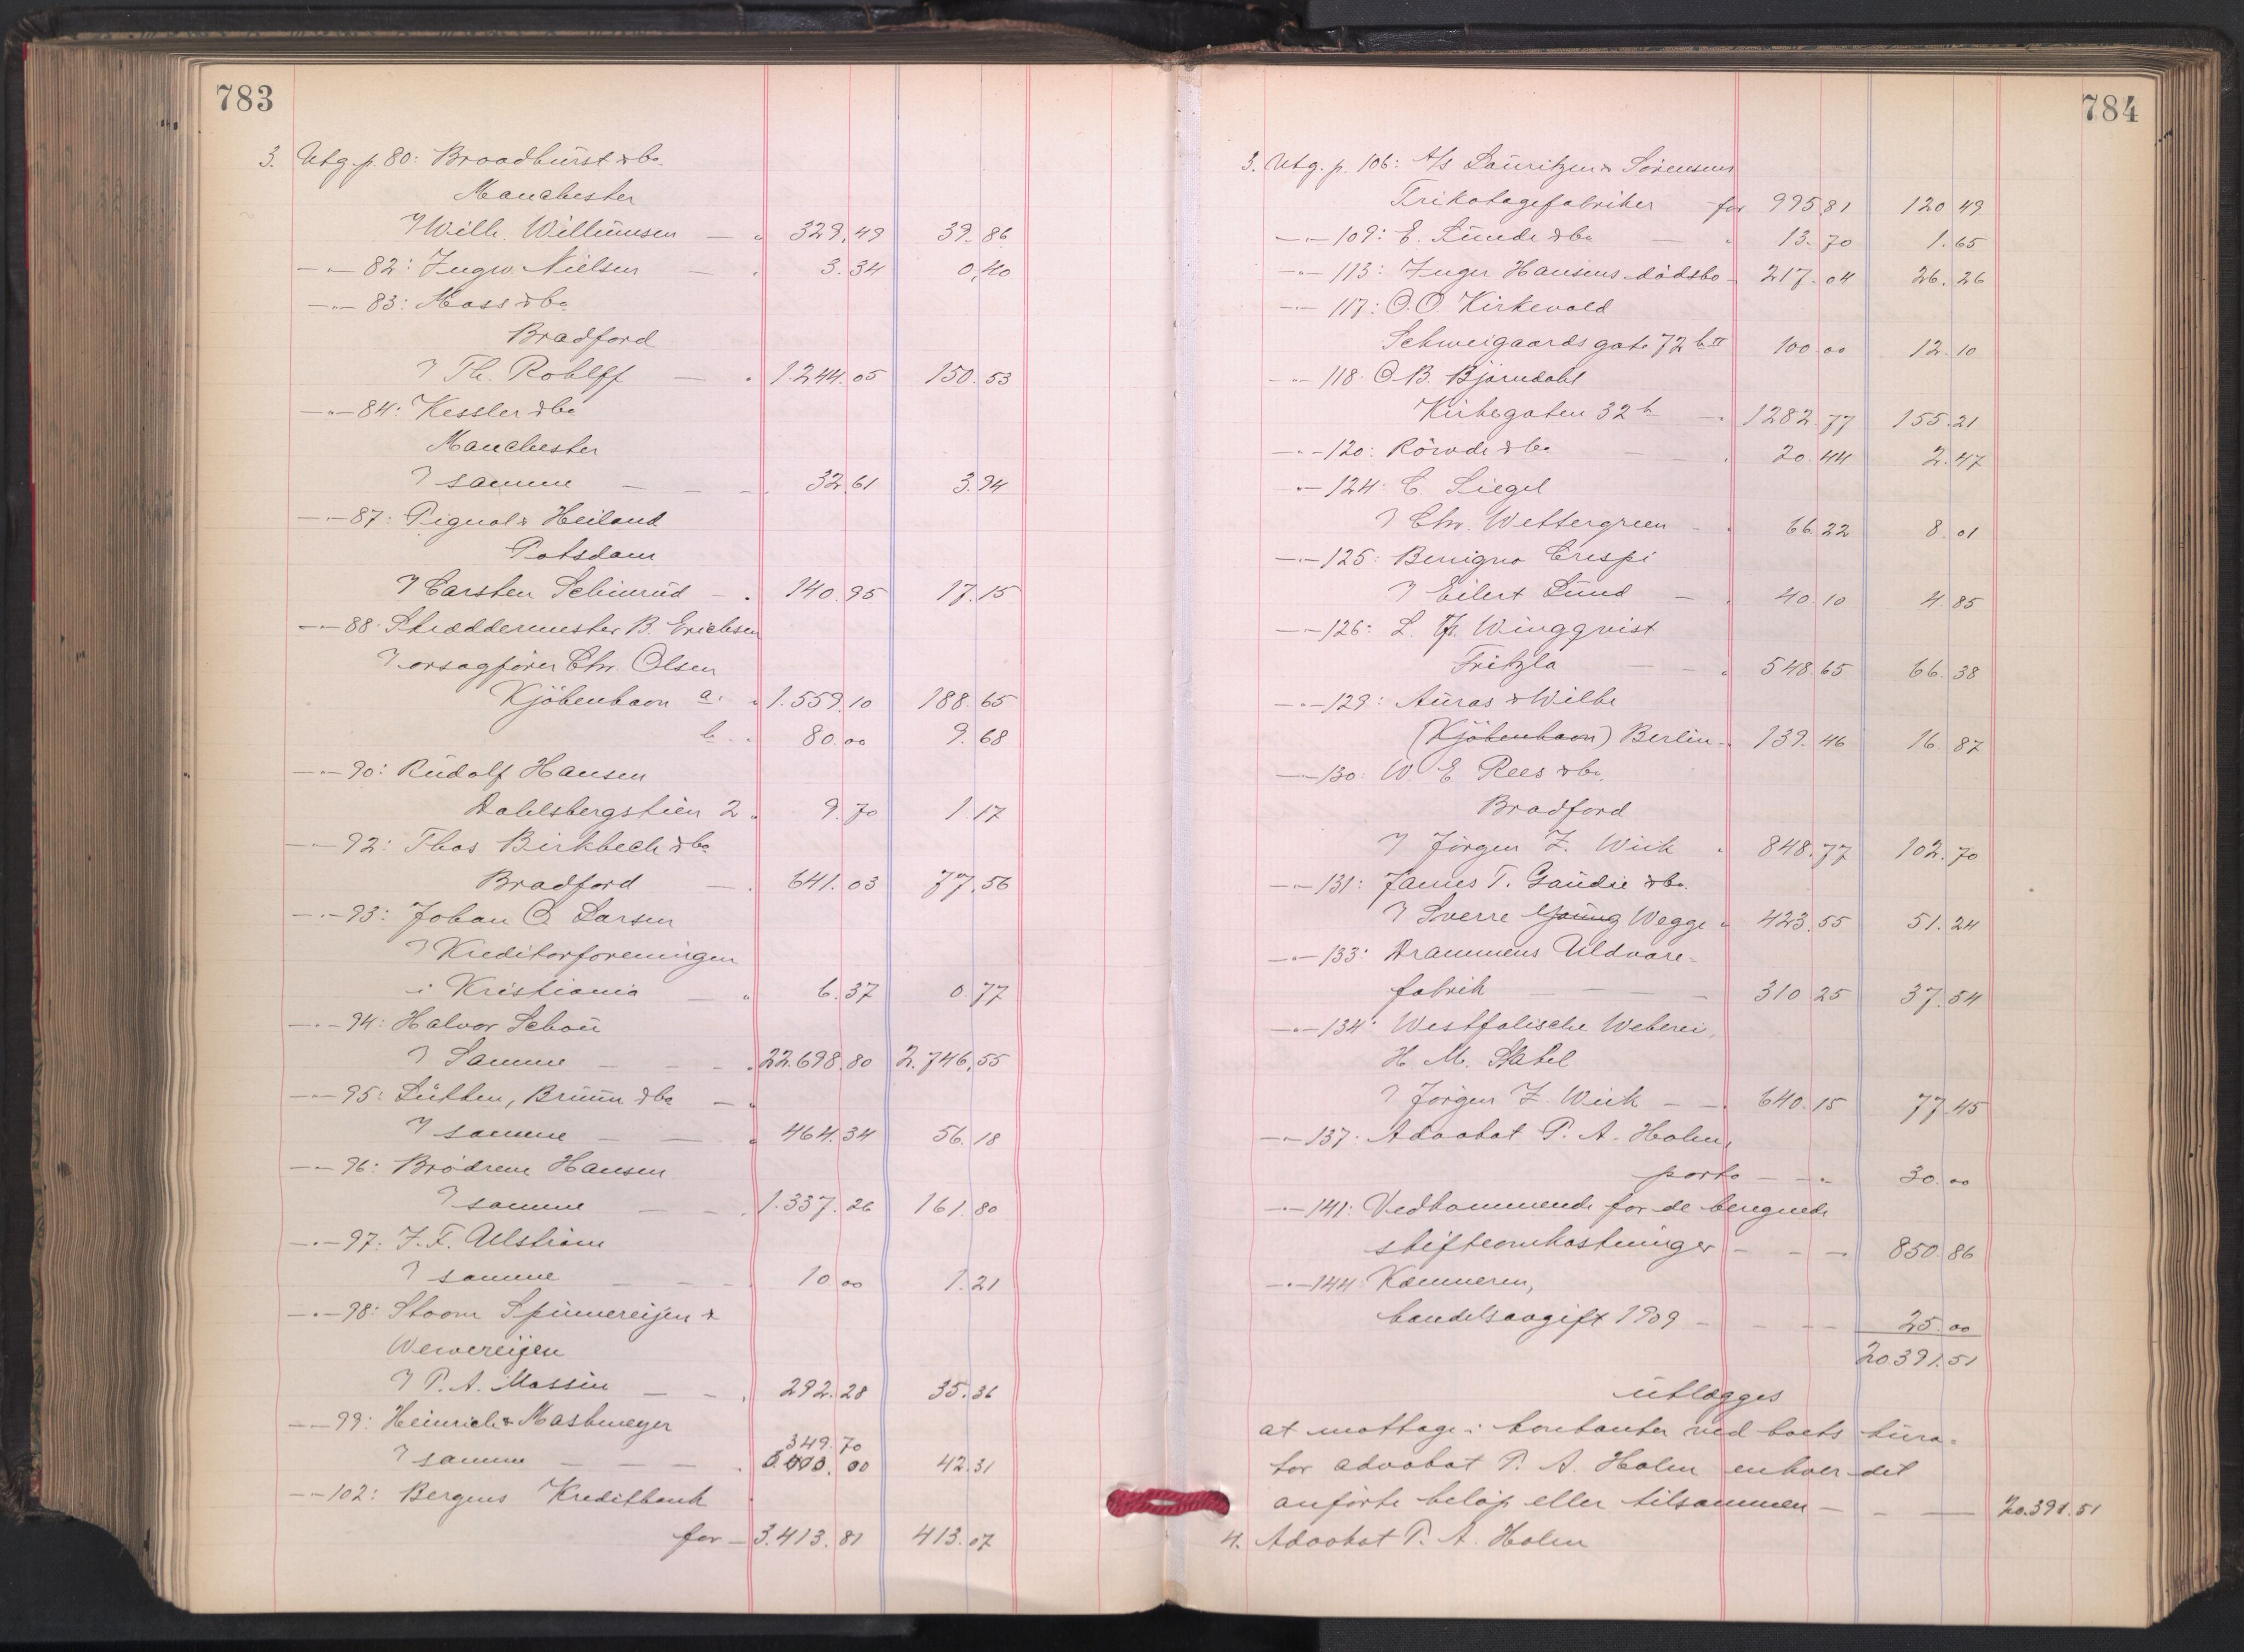 783
3. Utg. p. 80: Broadhurst & Co.
Manchester
v/ Wilh. Willumsen — " 329.49 39.86
—"— 82: Ingw. Nielsen — " 3.34 0,40
—"— 83: Moss & Co.
Bradford
v/ Th. Rohlff — " 1.244.05 150.53
—"— 84: Kessler & Co
Manchester
v/ samme — — — 32.61 3.94
—"— 87: Pignol & Heiland
Potsdam
v/ Carsten Schinrud — " 140.95 17.15
—"— 88: Skræddermester B. Erichsen
v/ orsagfører Chr. Olsen
Kjöbenhavn a. " 1.559.10 188.65
b. " 80.00 9.68
—"— 90: Rudolf Hansen
Dahlsbergstien 2 " 9.70 1.17
—"— 92: Thos Birkbeck & Co
Bradford — " 641.03 77.56
—"— 93: Johan O. Larsen
v/ Kreditorforeningen
i Kristiania — " 6.37 0.77
—"— 94: Halvor Schou
v/ Samme — — — " 22.698.80 2.746,55
—"— 95: Lütken, Bruun & Co — "
v/ samme — — " 464.34 56.18
—"— 96: Brödrene Hansen
v/ samme — — " 1.337.26 161.80
—"— 97: J. F. Ullstrøm
v/ samme — — — 10.00 1.21
—"— 98: Stoom Spinnereijen &
Wewereijen
v/ P. A. Massin — — " 292.28 35.36
—"— 99: Heinrich & Mashmeyer
349.70
v/ samme — — — " 42.31
—"— 102: Bergens Kreditbank
for — 3.413.81 413.07
784
3. Utg. p. 106: A/s Lauritzen & Sørensens
Trikotagefabriker for 995.81 120.49
—"— 109: E. Sunde & Co — " 13.70 1.65
—"— 113: Inger Hansens dödsbo — 217.04 26.26
—"— 117: O. O. Kirkevold
Schweigaards gate 72 b II 100.00 12.10
—"— 118: O. B. Bjørndahl
Kirkegaten 32 b — " 1282.77 155.21
—"— 120: Rörvde & Co — " 20.44 2.47
—"— 124: C. Siegel
v/ Chr. Wettergreen — " 66.22 8.01
—"— 125: Benigno Crespi
v/ Eilert Lund — " 40.10 4.85
—"— 126: L. Th. Wingqvist
Fritzla — — " 548.65 66.38
—"— 129: Auras & Wilke
(Kjöbenhavn) Berlin " 139.46 16.87
—"— 130: W. E. Rees & Co.
Bradford
v/ Jörgen Z. Wiik " 848.77 102.70
—"— 131: James T. Gaudie & Co.
v/ Sverre Young Wegge " 423.55 51.24
—"— 133: Drammens Uldvare-
fabrik — — — — 310.25 37.54
—"— 134: Westfalische Weberei,
H. M. Stahel
v/ Jörgen Z. Wiik — — 640.15 77.45
—"— 137: Advokat P. A. Holm,
porto — — " 30.00
—"— 141: Vedkommende for de beregnede
skifteomkostninger — — — 850.86
—"— 144: Kæmneren,
handelsavgift 1909 — — — — 25.00
20391.51
utlægges
at mottage i kontanter ved boets kura-
tor advokat P. A. Holm enhver det
anförte beløp eller tilsammen — — — 20.391.51
4. Advokat P. A. Holm